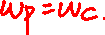 wp = wc.